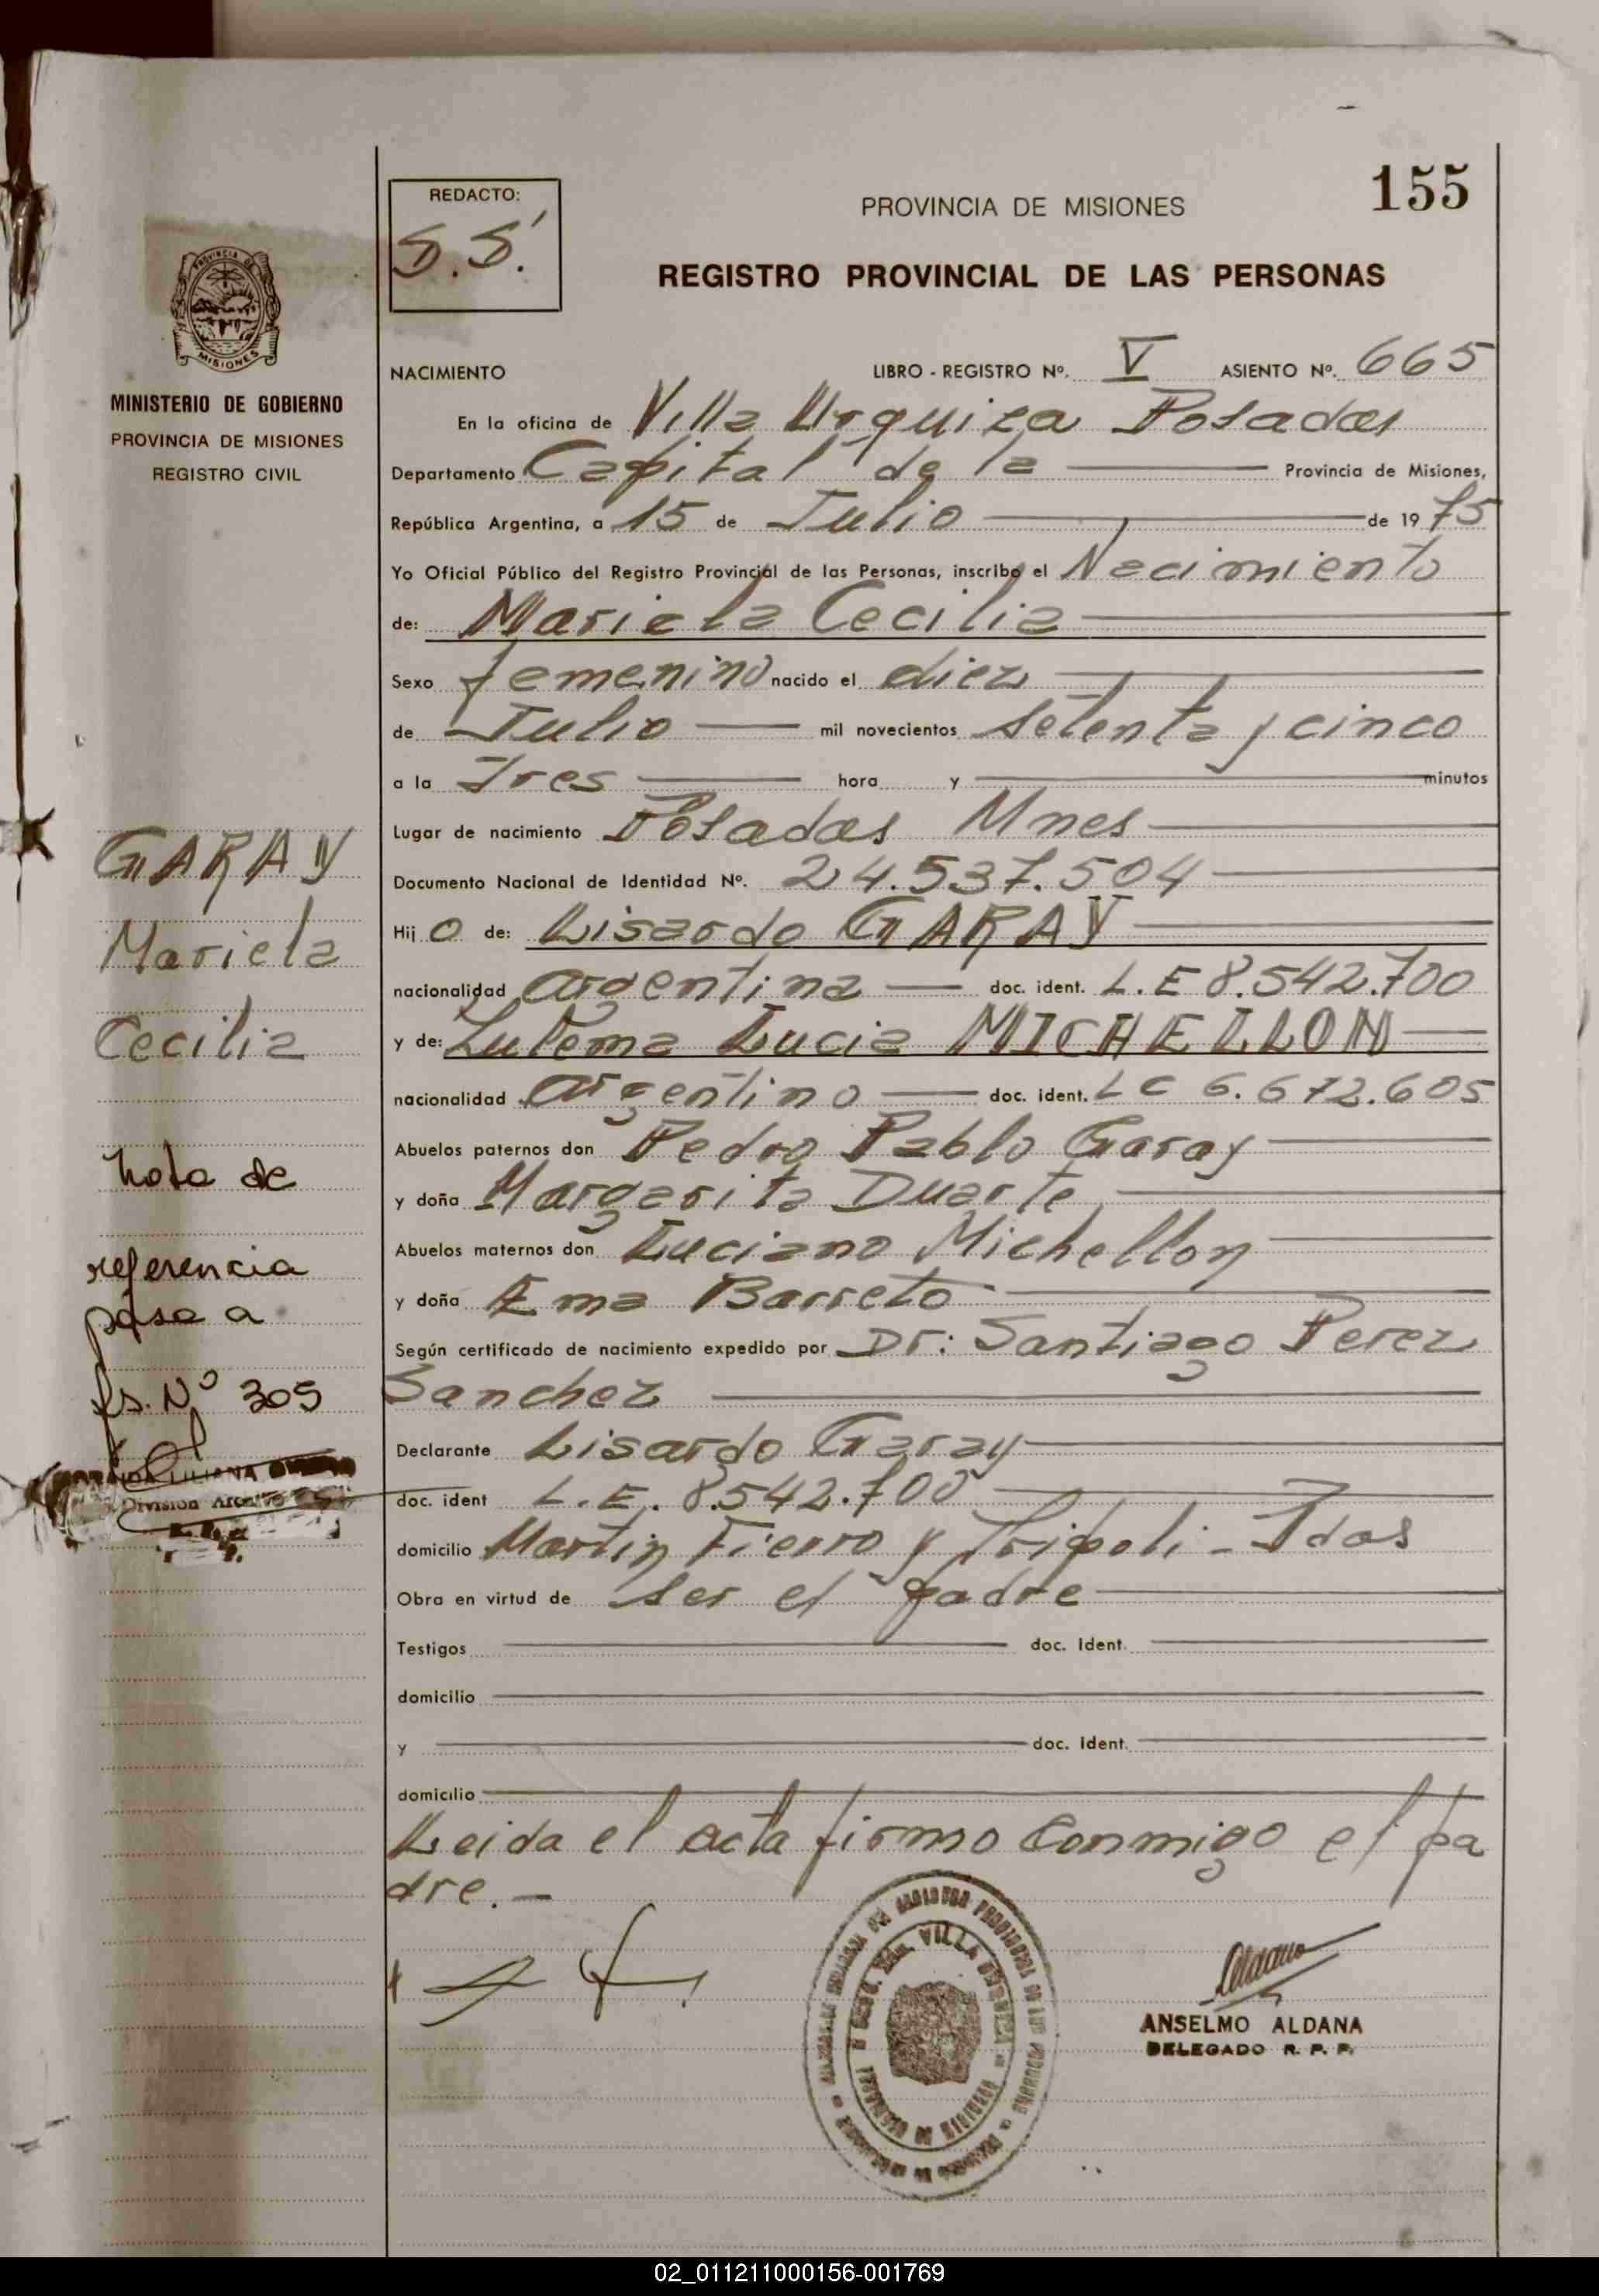 155
REDACTO:
S.S.
PROVINCIA DE MISIONES
REGISTRO PROVINCIAL DE LAS PERSONAS
MISIONES
MINISTERIO DE GOBIERNO
PROVINCIA DE MISIONES
REGISTRO CIVIL
NACIMIENTO LIBRO - REGISTRO Nº. V ASIENTO Nº. 665
En la oficina de Villa Urquiza Posadas
Departamento Capital de la Provincia de Misiones,
República Argentina, a 15 de Julio de 1975
Yo Oficial Público del Registro Provincial de las Personas, inscribo el Nacimiento
de: Mariela Cecilia
Sexo femenino nacido el diez
de Julio mil novecientos setenta y cinco
a la Tres hora y minutos
Lugar de nacimiento Posadas Mnes
Documento Nacional de Identidad Nº. 24.537.504
Hijo de: Lisardo GARAY
nacionalidad argentina doc. ident. L.E 8.542.700
y de: Zulema Lucia MICHELLON
nacionalidad argentino doc. ident. LC 6.672.605
Abuelos paternos don Pedro Pablo Garay
y doña Margarita Duarte
Abuelos maternos don Luciano Michellon
y doña Ema Barreto
Según certificado de nacimiento expedido por Dr: Santiago Perez
Sanchez
Declarante Lisardo Garay
doc. ident L.E. 8.542.700
domicilio Martin Fierro y Tripoli - Pdas
Obra en virtud de ser el padre
Testigos doc. Ident.
domicilio
y doc. Ident.
domicilio
Leida el acta firmo conmigo el pa
dre.-
GARAY
Mariela
Cecilia
nota de
referencia
pasa a
fs. Nº 305
LILIANA
División Archivo
VILLA URQUIZA
ANSELMO ALDANA
DELEGADO R. P. P.
02_011211000156-001769